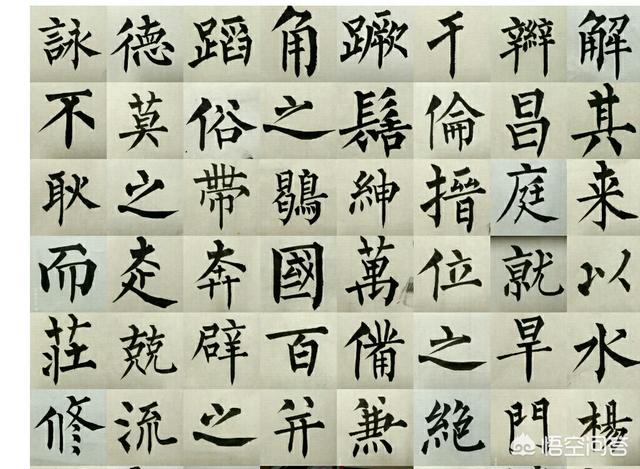 解辮千蹶角蹈德詠
其昌倫之俗莫不
来庭搢紳鶡帶之耿
以就位萬國奔走而
水旱之備百辟兢莊
楊門絕兼并之流修
悟空问答